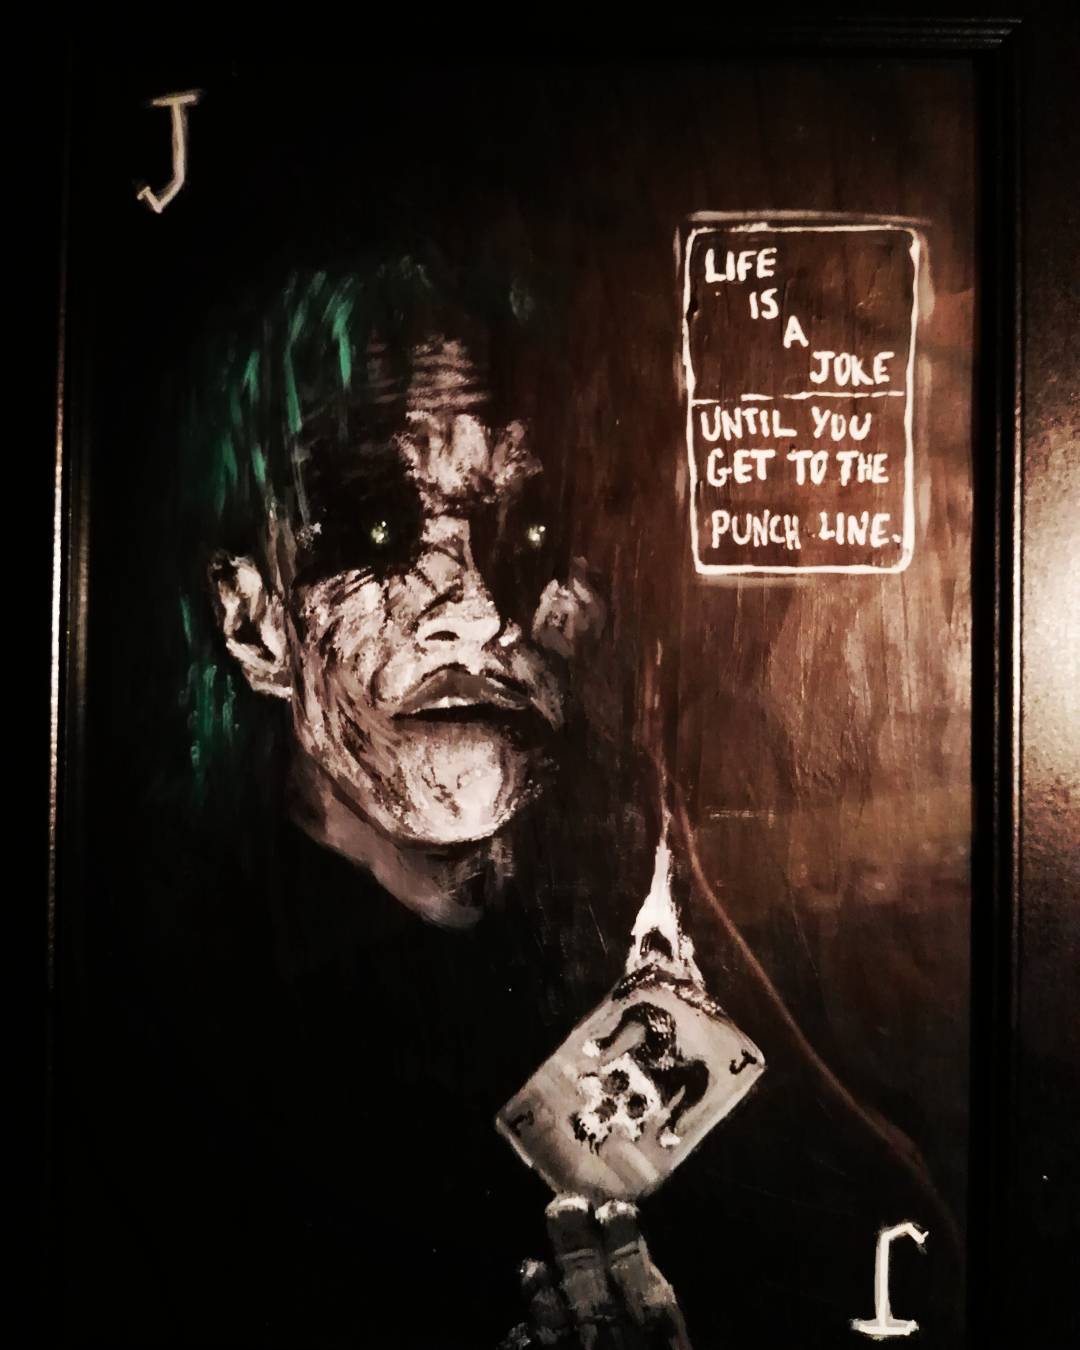 J
LIFE
IS
A
JOKE
UNTIL YOU
GET TO THE
PUNCH LINE.
J
J
J